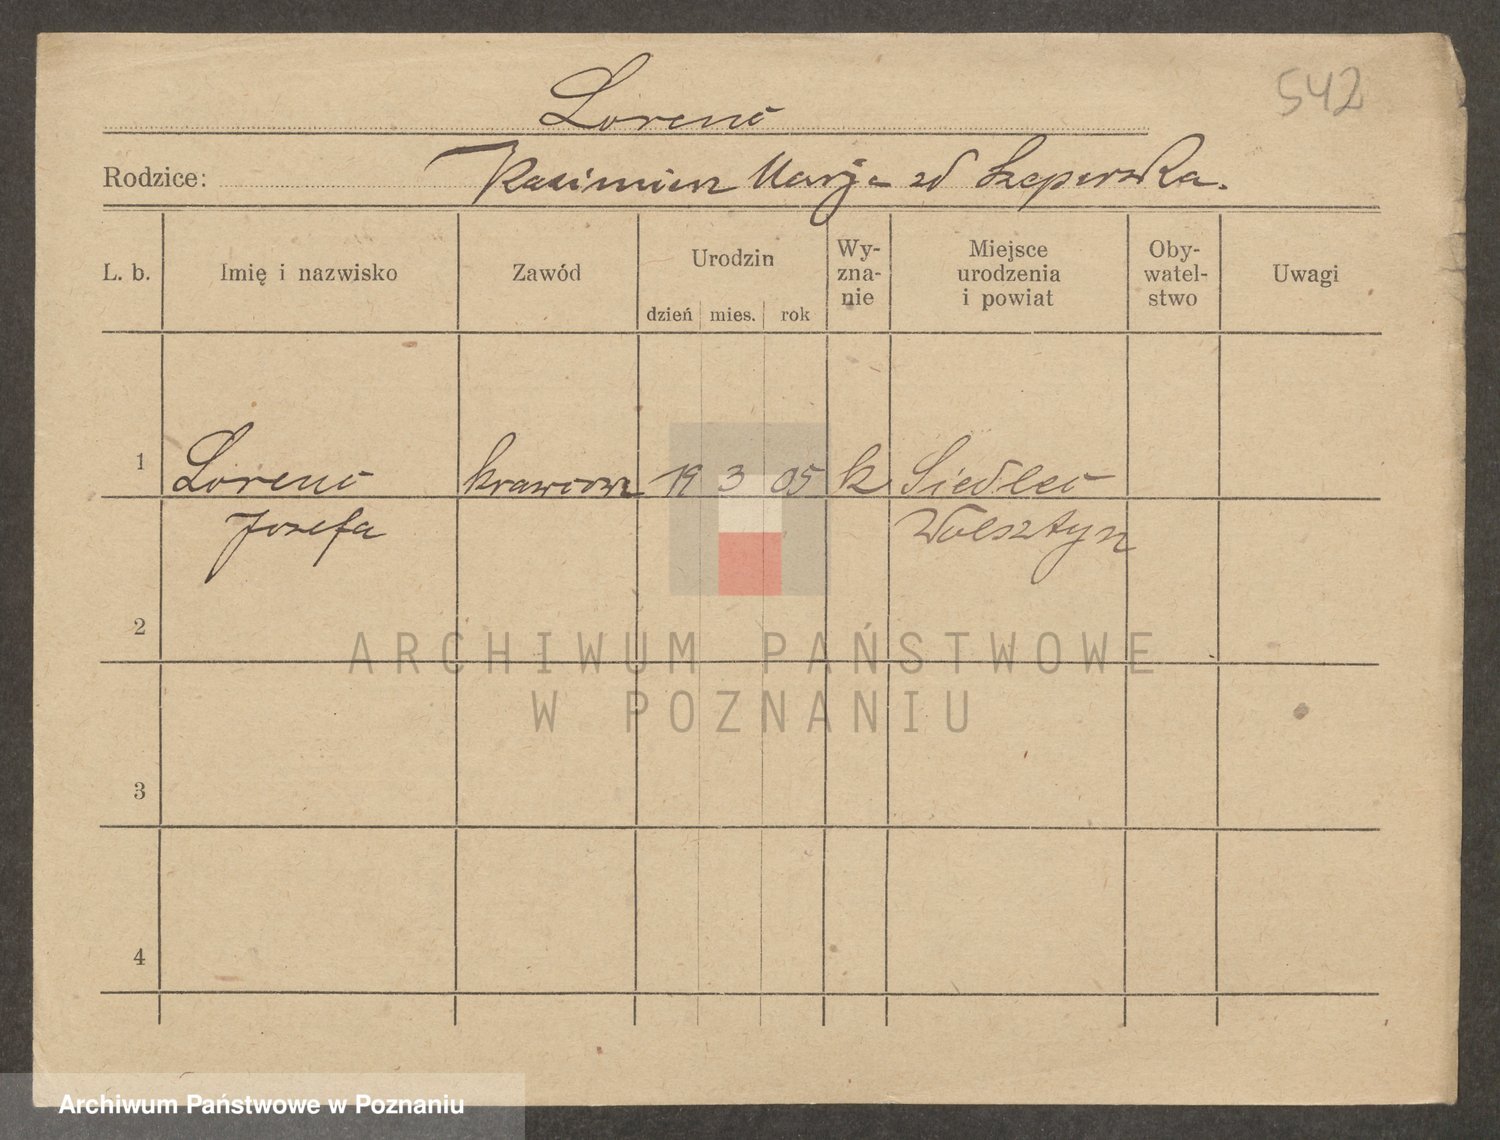 542
Lorenc
Rodzice: Kazimierz Marja zd Szeperska.
L. b. Imię i nazwisko Zawód Urodzin dzień mies. rok Wy-zna-nie Miejsce urodzenia i powiat Oby-watel-stwo Uwagi
1 Lorenc krawcowa 19 3 05 k Siedlec
Josefa Wolsztyn
2
3
4
ARCHIWUM PAŃSTWOWE
W POZNANIU
Archiwum Państwowe w Poznaniu